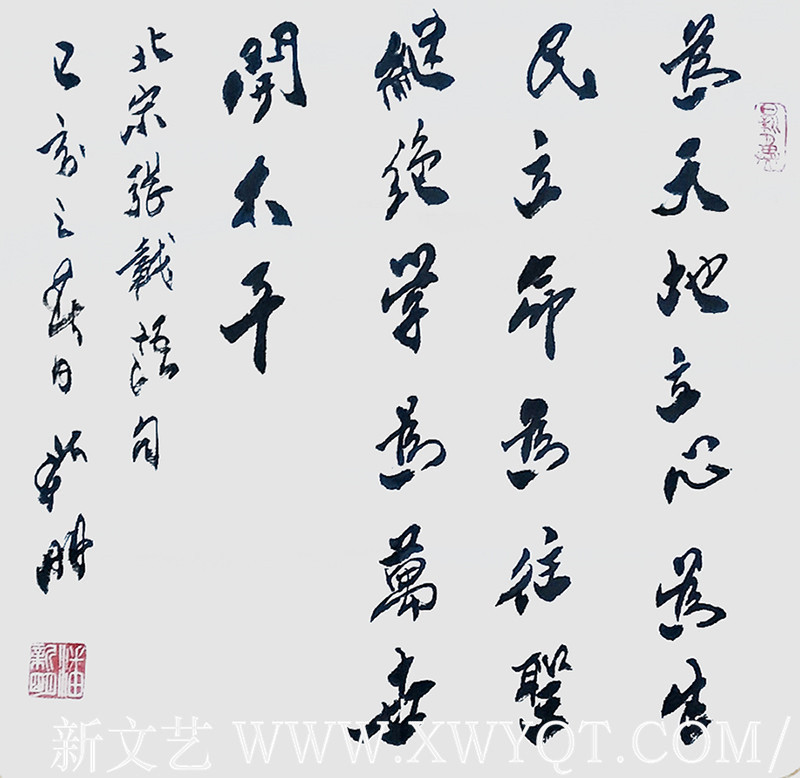 為天地立心為生
民立命為往聖
繼绝学為萬世
開太平
北宋張載語句
己亥之春日
新文艺 WWW.XWYQT.COM/